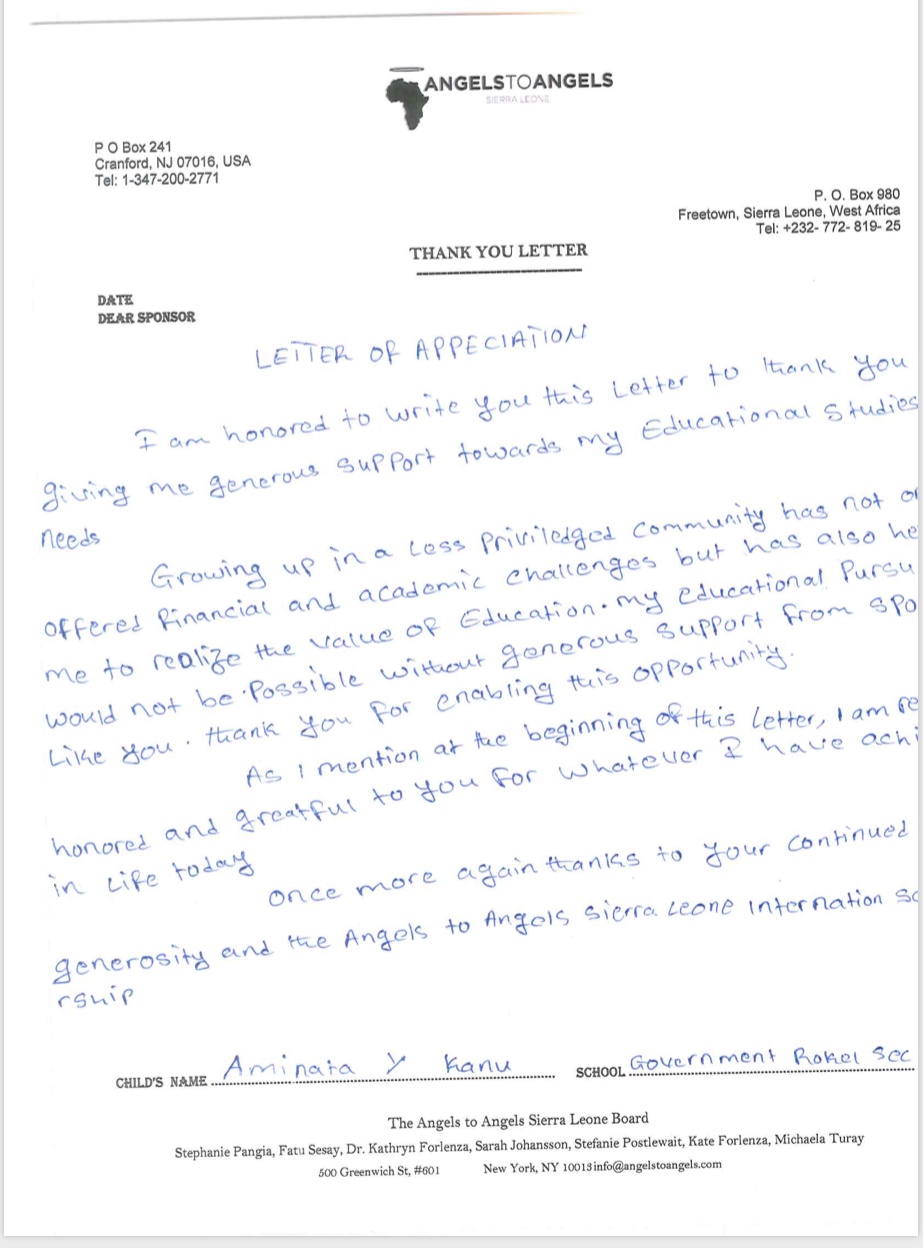 ANGELSTOANGELS
SIERRA LEONE
P O Box 241
Cranford, NJ 07016, USA
Tel: 1-347-200-2771
P. O. Box 980
Freetown, Sierra Leone, West Africa
Tel: +232- 772- 819- 25
THANK YOU LETTER
DATE
DEAR SPONSOR
LETTER OF APPECIATION
I am honored to write you this Letter to thank you
giving me generous support towards my Educational Studies
needs
Growing up in a Less Priviledged community has not
offered financial and academic challenges but has also
me to realize the value of Education. my educational
would not be Possible without generous support from
Like you. thank you for enabling this opportunity.
As I mention at the beginning of this Letter, I am
honored and greatful to you for whatever I have
in Life today
Once more again thanks to your continued
generosity and the Angels to Angels sierra Leone Internation
rship
CHILD'S NAME Aminata Y Kanu SCHOOL Government Rokel Sec
The Angels to Angels Sierra Leone Board
Stephanie Pangia, Fatu Sesay, Dr. Kathryn Forlenza, Sarah Johansson, Stefanie Postlewait, Kate Forlenza, Michaela Turay
500 Greenwich St, #601 New York, NY 10013 info@angelstoangels.com